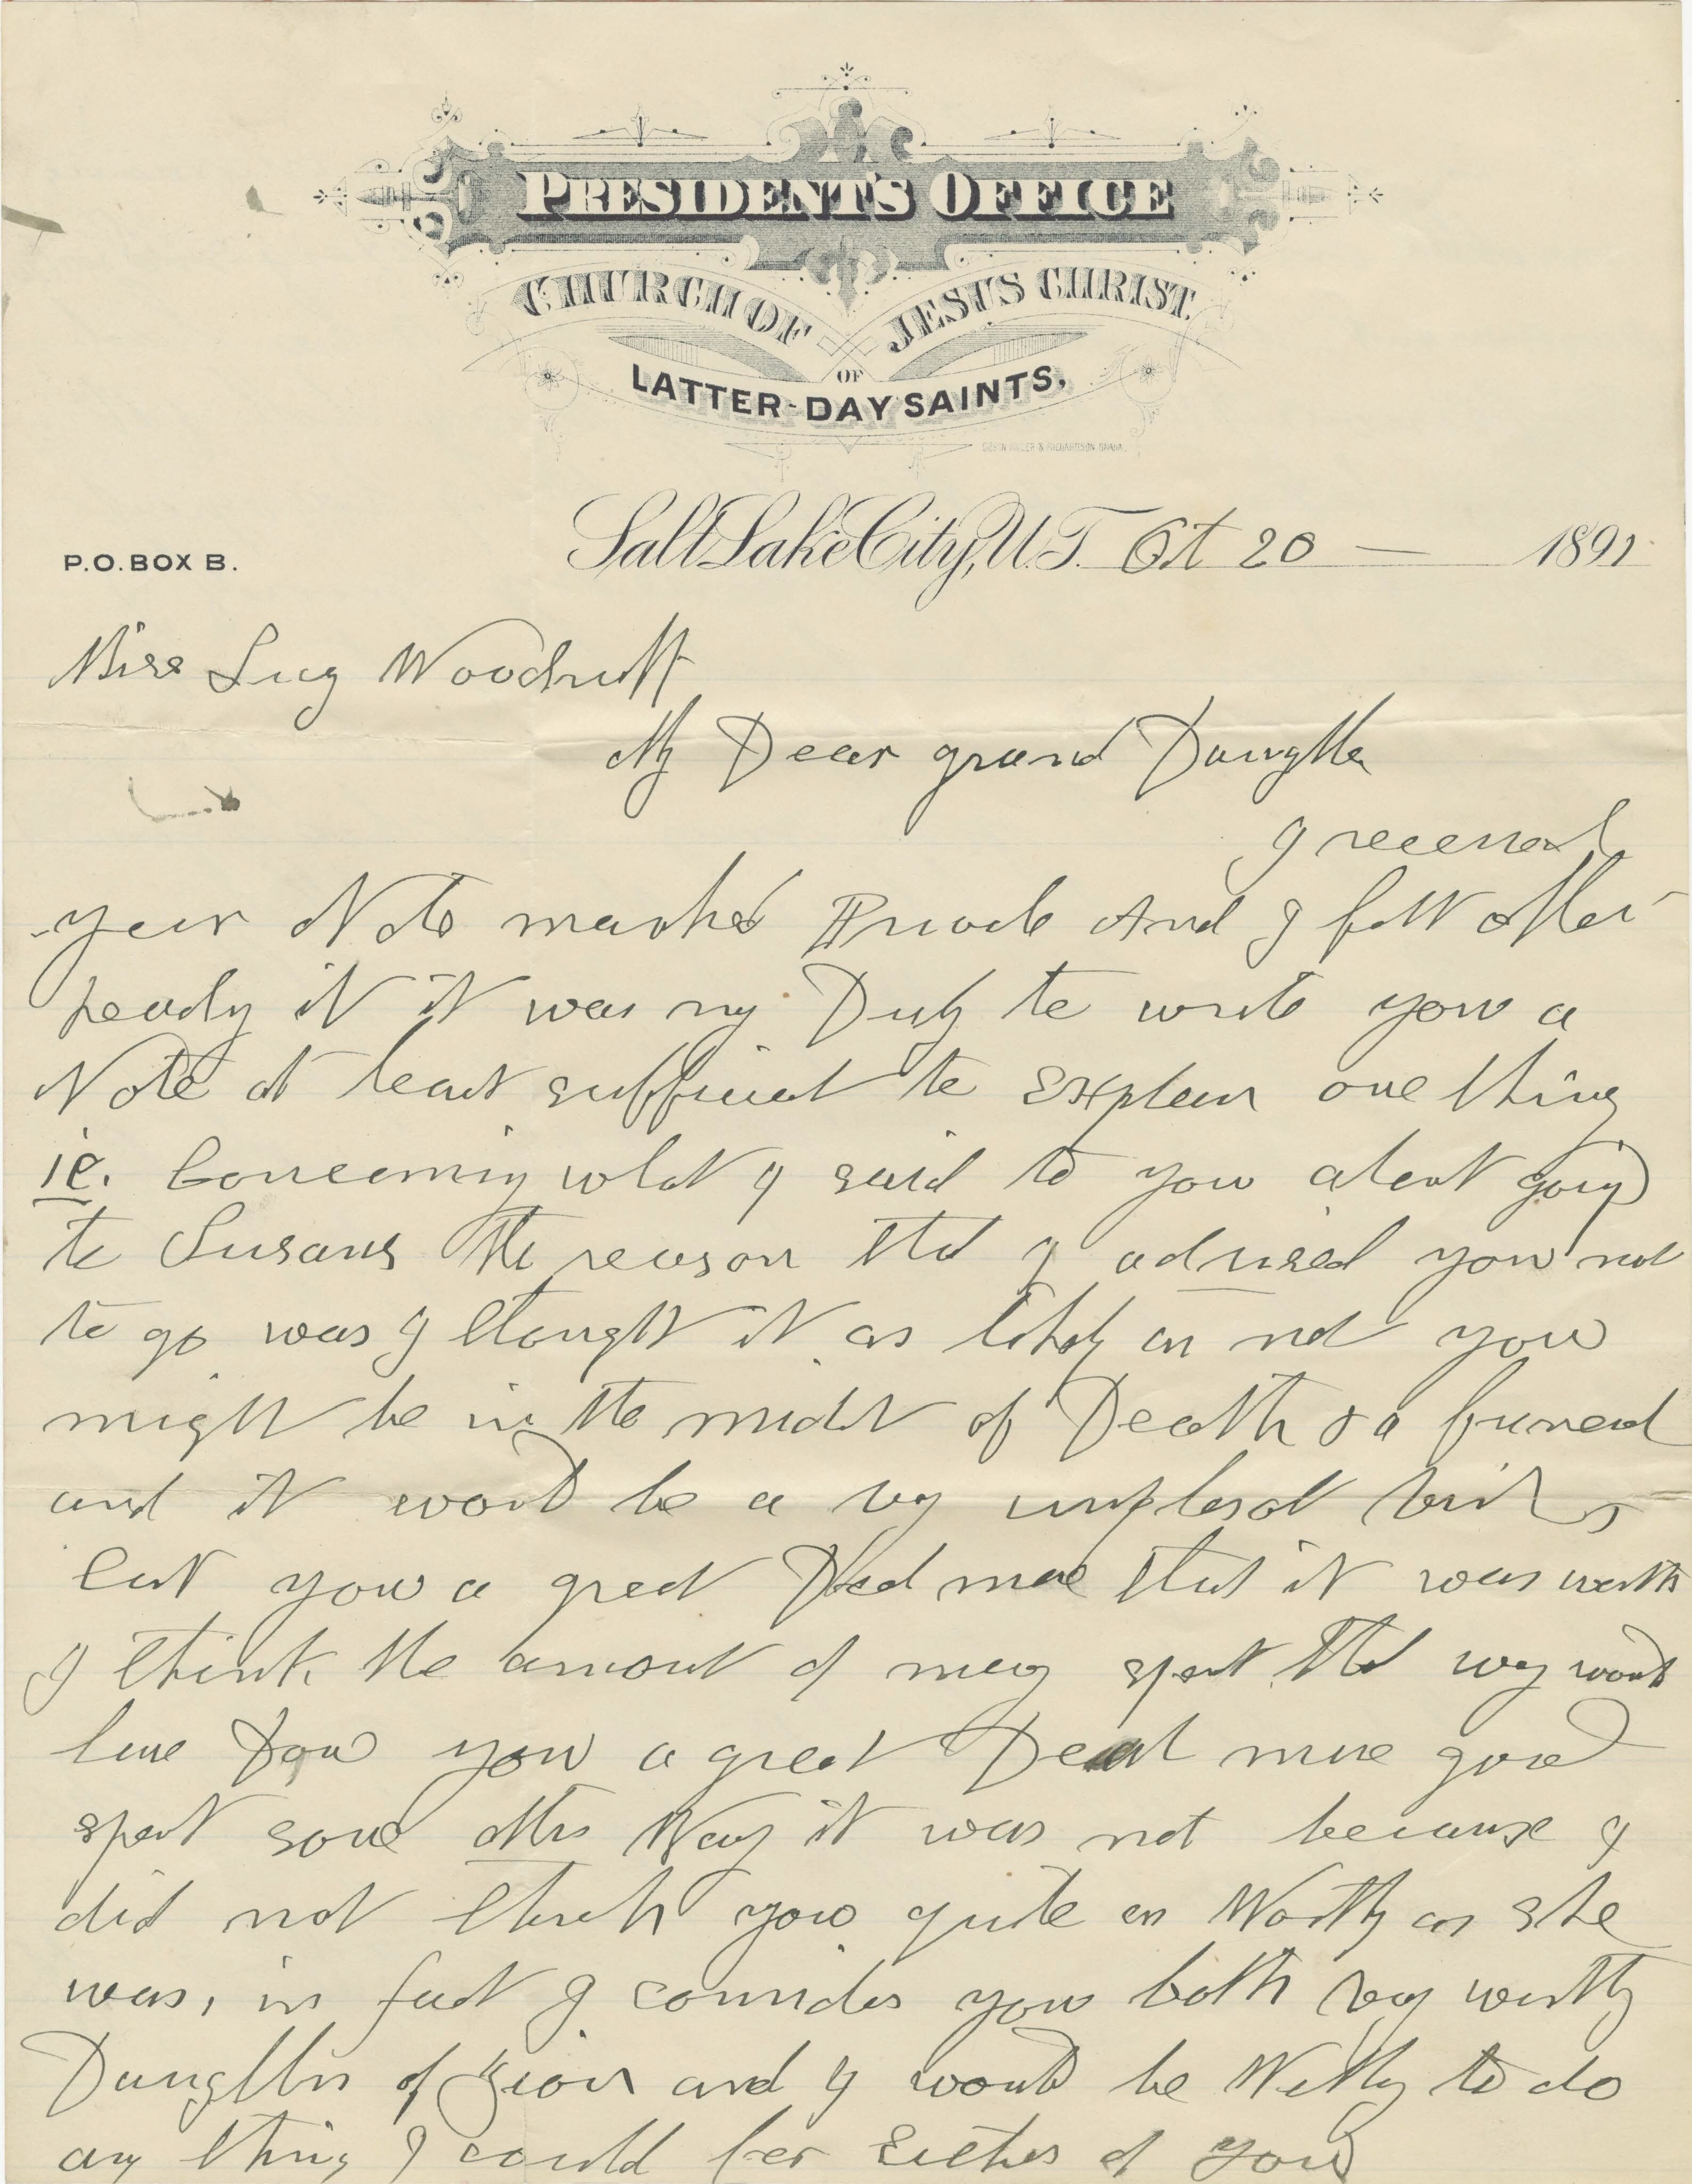 PRESIDENT'S OFFICE
CHURCH OF JESUS CHRIST
OF
LATTER-DAY SAINTS,
P.O. BOX B.
Salt Lake City, U.T. Oct 20 — 1891
Miss Lucy Woodruff
My Dear grand Daughter
I received
your Note marked Private And I felt after
ready it it was my Duty to write you a
Note at least sufficient to Explain one thing
ie. Concerning what I said to you about going
to Susans The reason that I advised you not
to go was I thought it as likely as not you
might be in the midst of Death & a funeral
and it would be a very unplesat visit &
cost you a great Deal more that it was worth
I think the amout of money spent that way would
have done you a great Deal more good
spent some other Way it was not because I
did not think you quite as Worthy as she
was, in fact I consider you both very worthy
Daughters of Zion and I would be Willing to do
any thing I could for Either of you